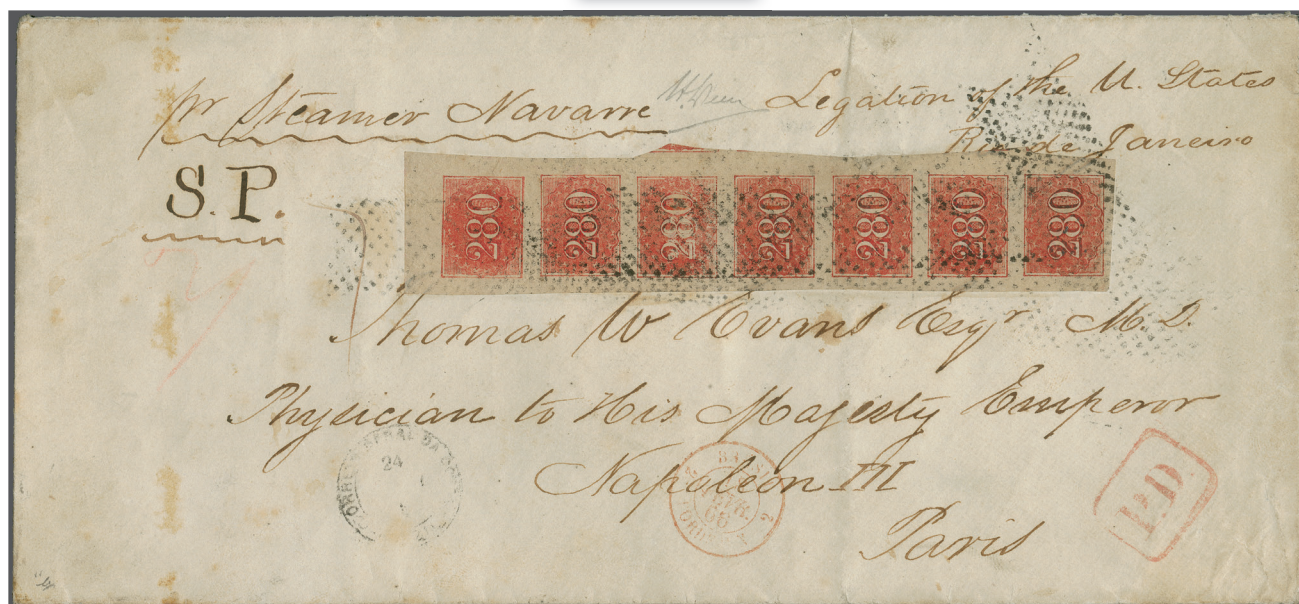 pr Steamer Navarre Legation of the U. States
Rio de Janeiro
S.P.
280 280 280 280 280 280 280
Thomas W Evans Esqr M.D.
Physician to His Majesty Emperor
Napoleon III
Paris
24
66
P.D.